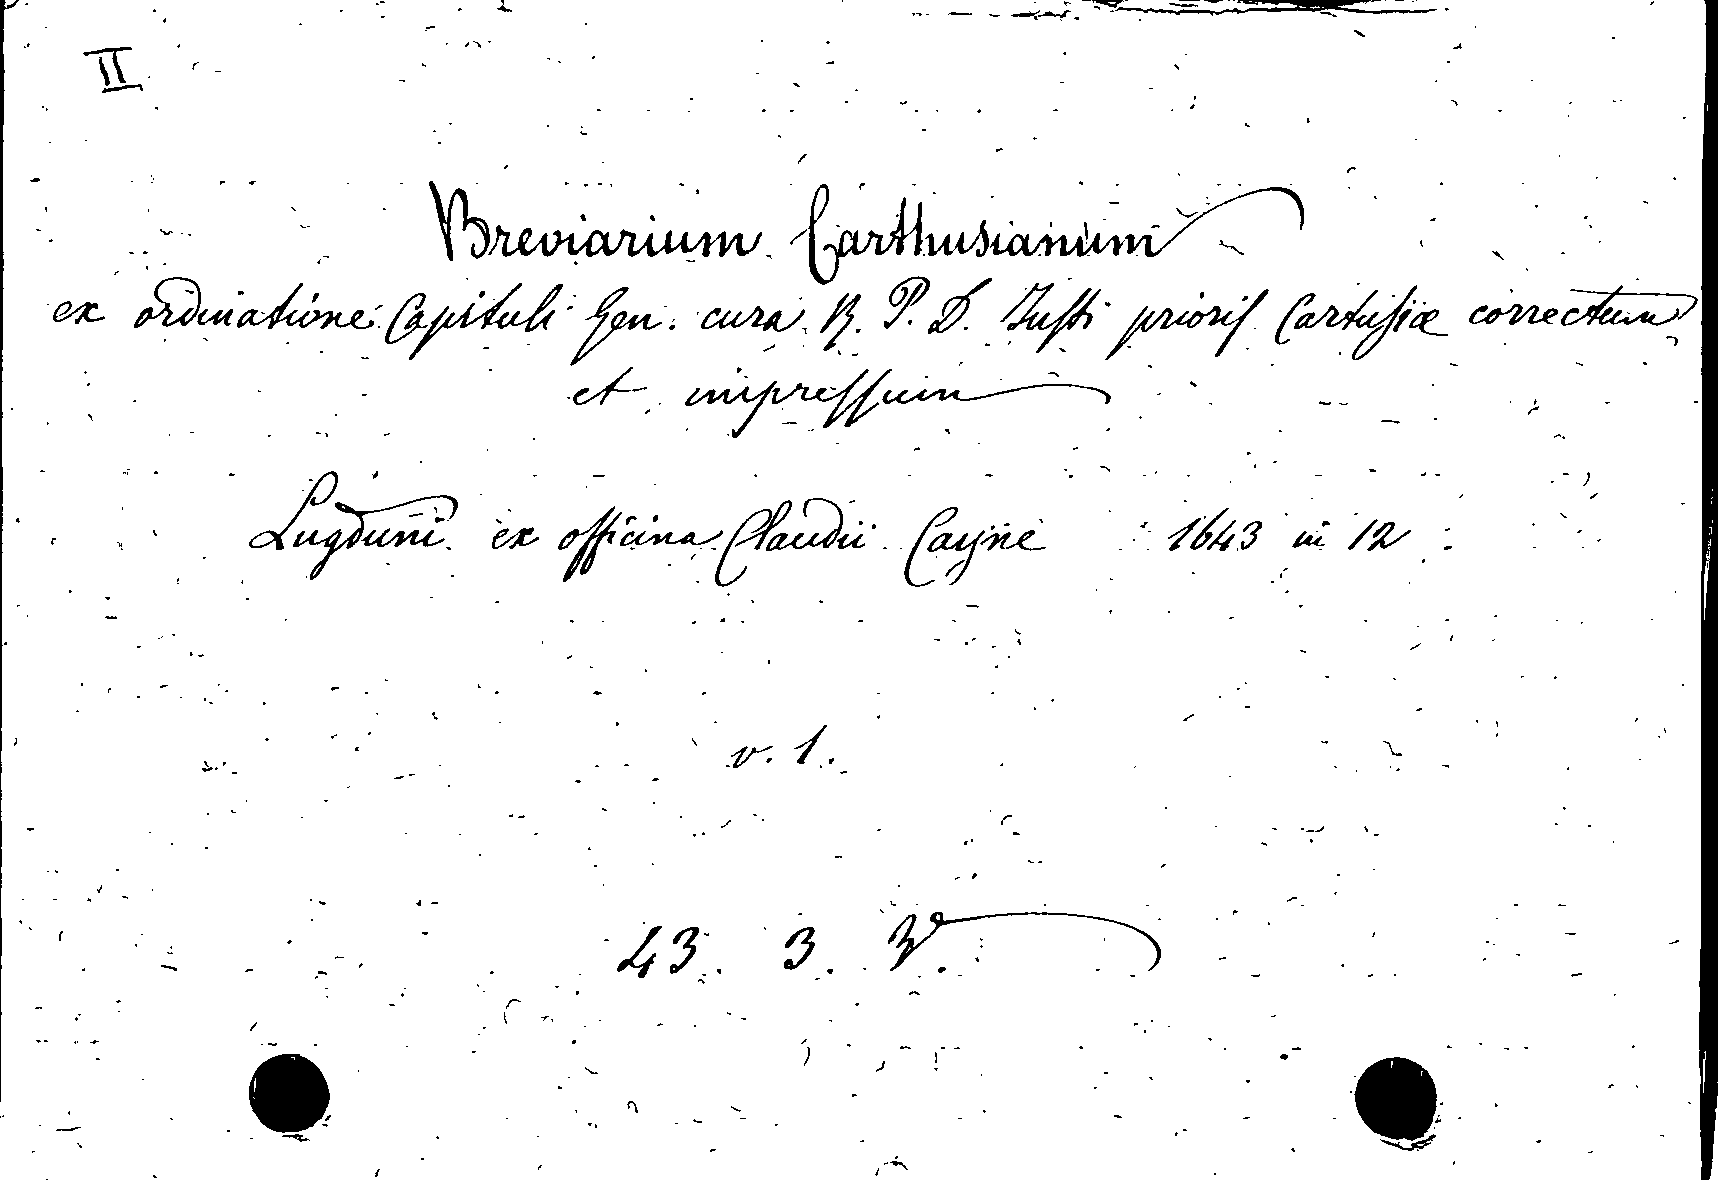 II
Breviarium Carthusianum
ex ordinatione Capituli Gen. cura R. P. D. Justi prioris Cartusiæ correctum
et impressum
Lugduni ex officina Claudii Cayne 1643 in 12
v. 1.
43. 3.